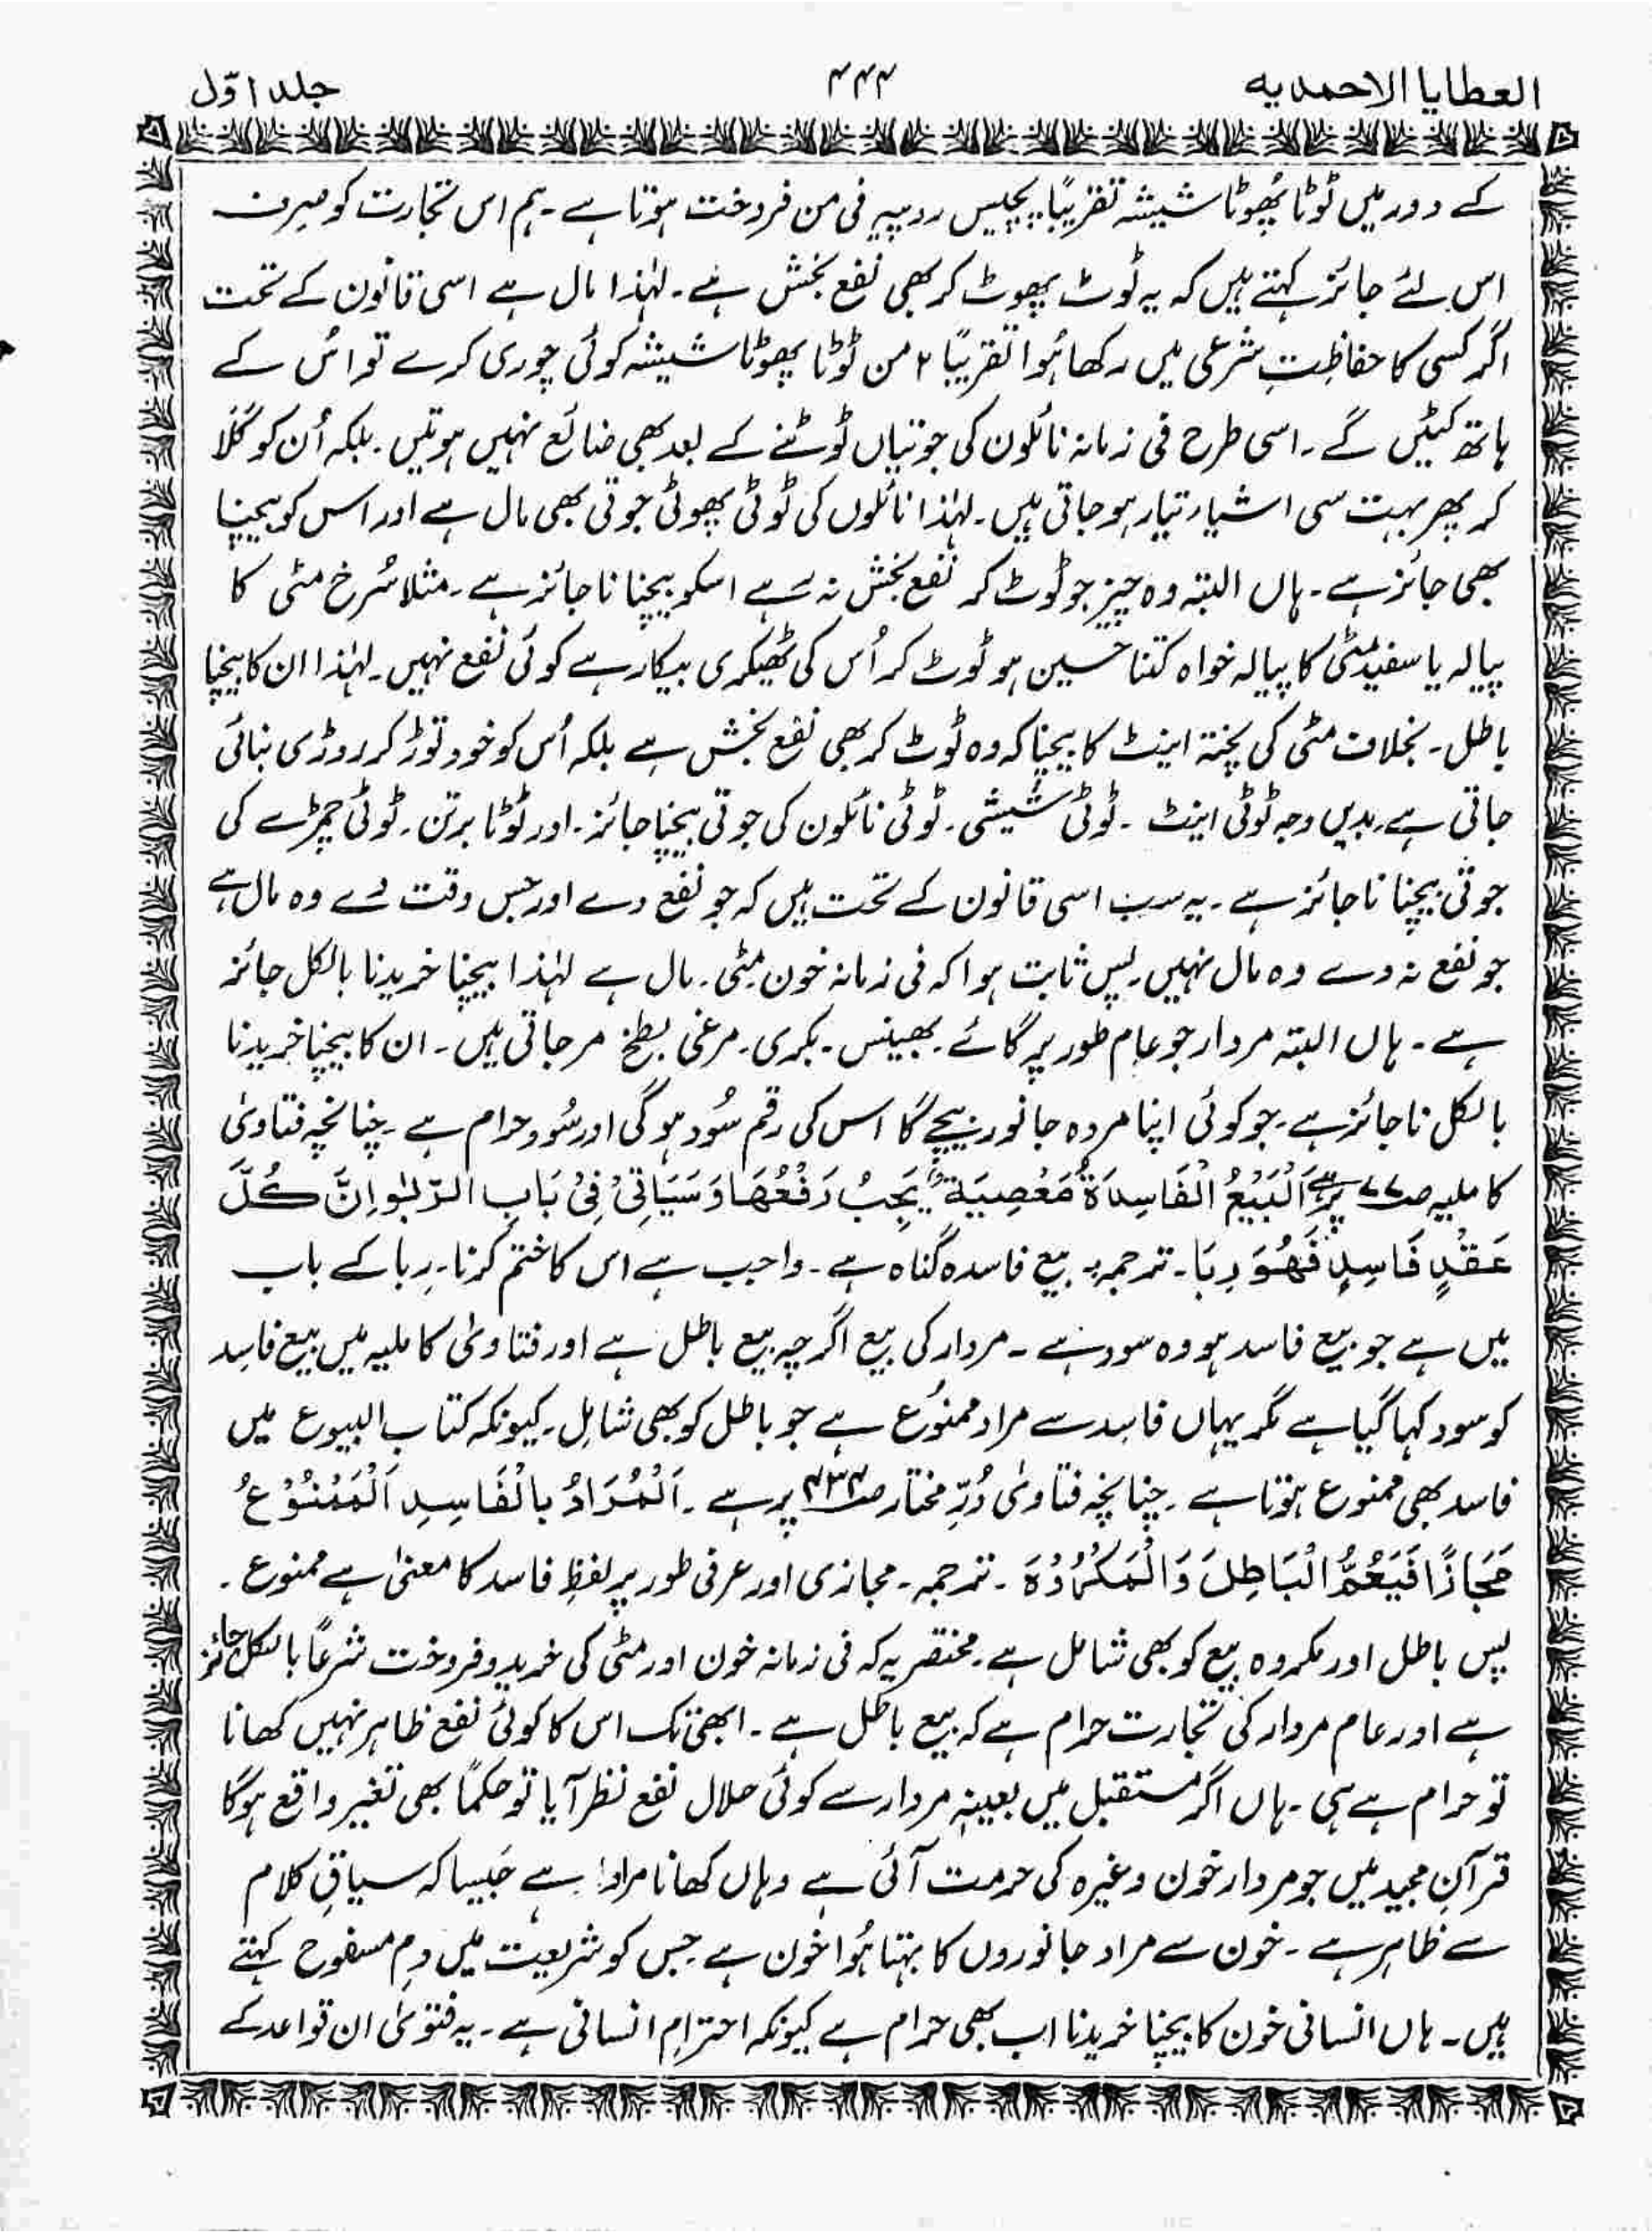 العطایا الاحمدیه
۴۴۴
جلد اوّل
کے دور میں ٹوٹا پُھوٹا شیشہ تقریبًا پچیس روپیہ فی من فروخت ہوتا ہے۔ ہم اس تجارت کو صِرف
اس لئے جائز کہتے ہیں کہ یہ ٹوٹ پھوٹ کر بھی نفع بخش ہے۔ لہٰذا مال ہے اسی قانون کے تحت
اگر کسی کا حفاظتِ شرعی میں رکھا ہُوا تقریبًا ۲ من ٹوٹا پھوٹا شیشہ کوئی چوری کرے تو اُس کے
ہاتھ کٹیں گے۔ اسی طرح فی زمانہ نائلون کی جوتیاں ٹوٹنے کے بعد بھی ضائع نہیں ہوتیں۔ بلکہ اُن کو گلا
کر پھر بہت سی اشیار تیار ہو جاتی ہیں۔ لہٰذا نائلوں کی ٹوٹی پھوٹی جوتی بھی مال ہے اور اس کو بیچنا
بھی جائز ہے۔ ہاں البتہ وہ چیز جو ٹوٹ کر نفع بخش نہ رہے اسکو بیچنا ناجائز ہے۔ مثلا سُرخ مٹی کا
پیالہ یا سفید مٹی کا پیالہ خواہ کتنا حسین ہو ٹوٹ کر اُس کی ٹھیکری بیکار ہے کوئی نفع نہیں۔ لہٰذا ان کا بیچنا
باطل۔ بخلاف مٹی کی پختہ اینٹ کا بیچنا کہ وہ ٹوٹ کر بھی نفع بخش ہے بلکہ اُس کو خود توڑ کر روڑی بنائی
جاتی ہے۔ بدیں وجہ ٹوٹی اینٹ ۔ ٹوٹی شیشی۔ ٹوٹی نائلون کی جوتی بیچنا جائز۔ اور ٹوٹا برتن۔ ٹوٹی چمڑے کی
جوتی بیچنا ناجائز ہے۔ یہ سب اسی قانون کے تحت ہیں کہ جو نفع دے اور جس وقت دے وہ مال ہے
جو نفع نہ دے وہ مال نہیں۔ پس ثابت ہوا کہ فی زمانہ خون مٹی۔ مال ہے لہٰذا بیچنا خریدنا بالکل جائز
ہے۔ ہاں البتہ مردار جو عام طور پر گائے۔ بھینس۔ بکری۔ مرغی بطخ مر جاتی ہیں۔ ان کا بیچنا خریدنا
بالکل ناجائز ہے۔ جو کوئی اپنا مردہ جانور بیچے گا اس کی رقم سُود ہو گی اور سُود حرام ہے۔ چنانچہ فتاویٰ
کاملیہ صـ۷۷ پر ہے اَلْبَيْعُ الْفَاسِدَةُ مَعْصِيَةٌ يَجِبُ رَفْعُهَا وَسَيَاتِیْ فِیْ بَابِ الرِّبٰوا اِنَّ كُلَّ
عَقْدٍ فَاسِدٍ فَهُوَ رِبَا۔ ترجمہ: بیع فاسدہ گناہ ہے۔ واجب ہے اس کا ختم کرنا۔ رِبا کے باب
میں ہے جو بیع فاسد ہو وہ سود ہے ۔ مردار کی بیع اگرچہ بیع باطل ہے اور فتاویٰ کاملیہ میں بیع فاسِد
کو سود کہا گیا ہے مگر یہاں فاسِد سے مراد ممنُوع ہے جو باطل کو بھی شامِل۔ کیونکہ کتاب البیوع میں
فاسد بھی ممنوع ہوتا ہے ۔ چنانچہ فتاویٰ دُرِّ مختار صـ پر ہے ۔ اَلْمُرَادُ بِالْفَاسِدِ اَلْمَمْنُوْعُ
مَجَازًا فَيَعُمُّ الْبَاطِلَ وَالْمَكْرُوْهَ ۔ ترجمہ۔ مجازی اور عرفی طور پر لفظِ فاسد کا معنیٰ ہے ممنوع۔
پس باطل اور مکروہ بیع کو بھی شامل ہے۔ مختصر یہ کہ فی زمانہ خون اور مٹی کی خرید و فروخت شرعاً بالکل جائز
ہے اور عام مردار کی تجارت حرام ہے کہ بیع باطل ہے ۔ ابھی تک اس کا کوئی نفع ظاہر نہیں کھانا
تو حرام ہے ہی۔ ہاں اگر مستقبل میں بعینہٖ مردار سے کوئی حلال نفع نظر آیا تو حکماً بھی تغیر واقع ہوگا
قرآنِ مجید میں جو مردار خون وغیرہ کی حرمت آئی ہے وہاں کھانا مراد ہے جَیسا کہ سیاقِ کلام
سے ظاہر ہے ۔ خون سے مراد جانوروں کا بہتا ہُوا خون ہے جس کو شریعت میں دمِ مسفوح کہتے
ہیں۔ ہاں انسانی خون کا بیچنا خریدنا اب بھی حرام ہے کیونکہ احترامِ انسانی ہے ۔ یہ فتویٰ ان قواعد کے